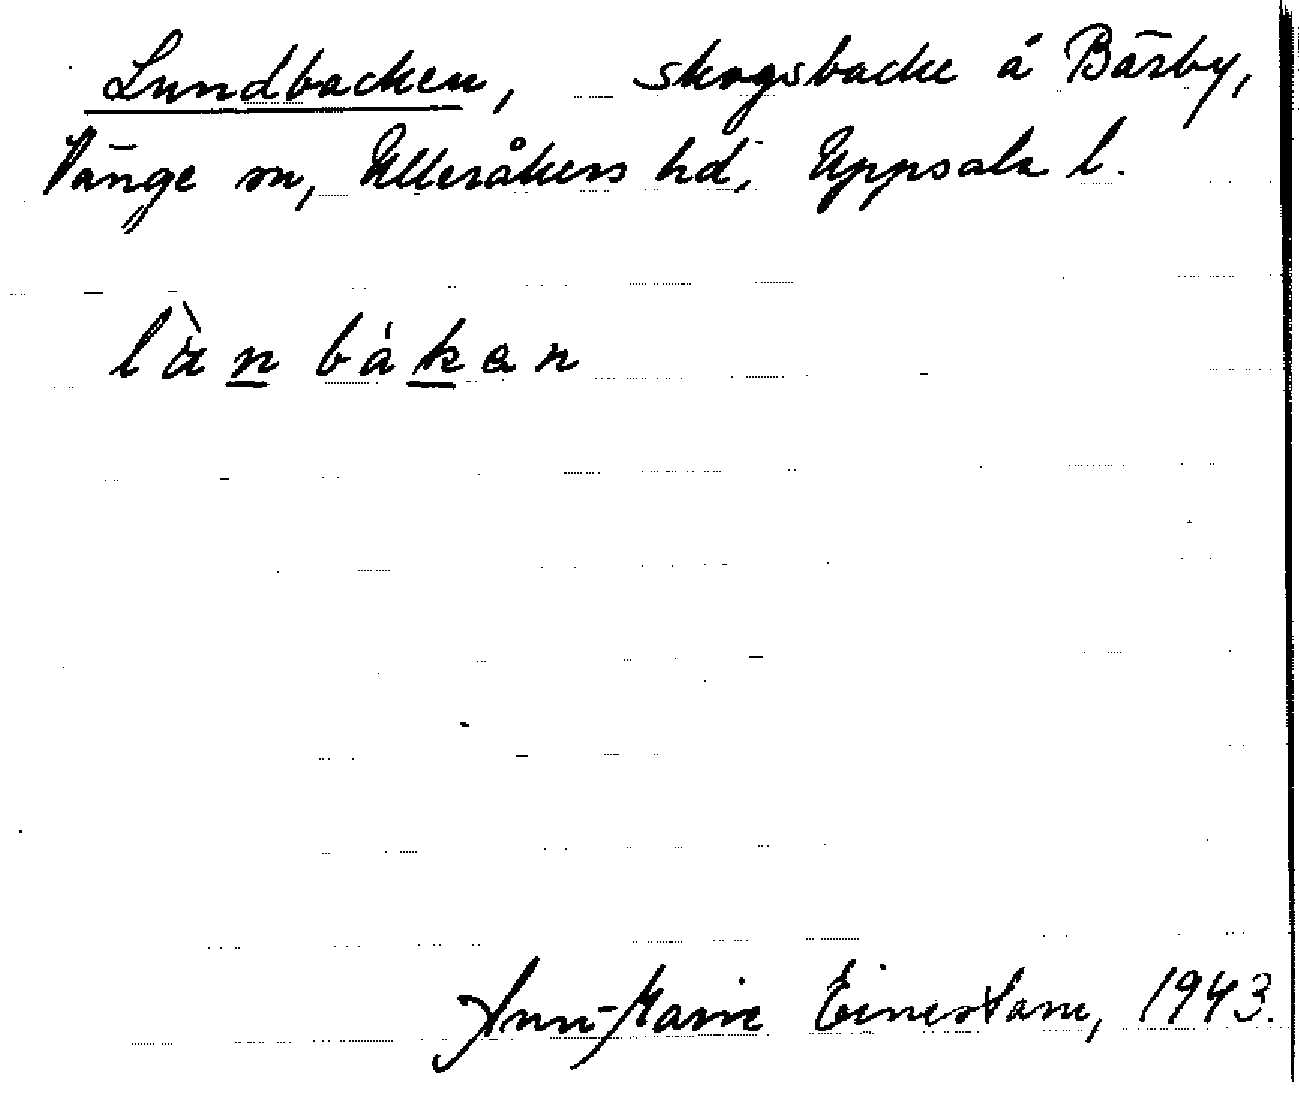 Lundbacken, skogsbacke å Bärby,
Vänge sn, Ulleråkers hd, Uppsala l.
làn bákan
Ann-Marie Einerstam, 1943.